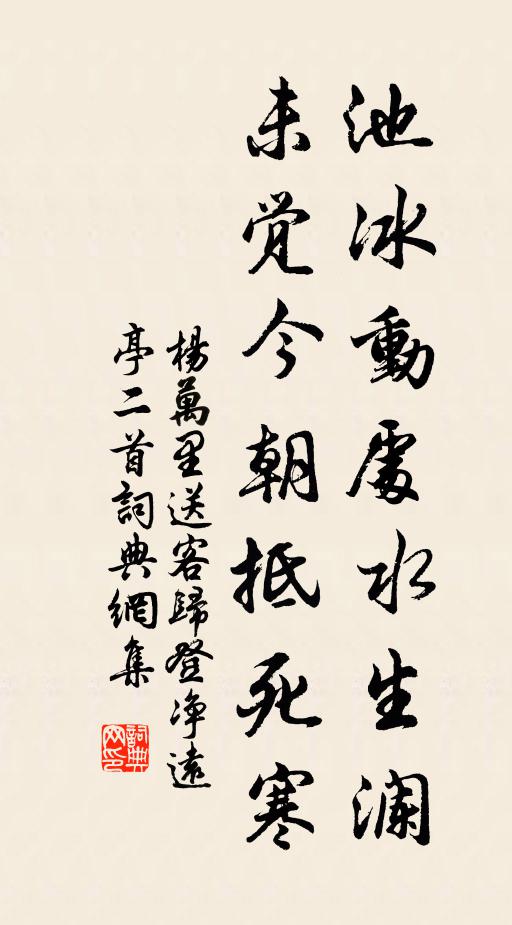 池冰動處水生澜
未觉今朝抵死寒
楊萬里送客歸登净遠
亭二首詞典網集
詞典
网印